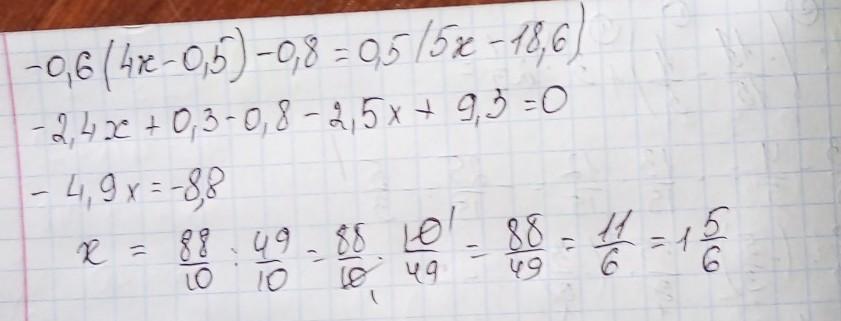 -0,6(4x-0,5)-0,8=0,5(5x-18,6)
-2,4x+0,3-0,8-2,5x+9,3=0
-4,9x=-8,8
x = 88/10 : 49/10 = 88/10 · 10/49 = 88/49 = 11/6 = 1 5/6